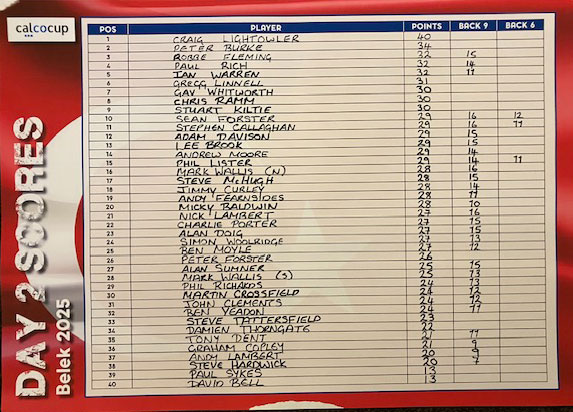 calcocup
DAY 2 SCORES
Belek 2025
POS PLAYER POINTS BACK 9 BACK 6
1 CRAIG LIGHTOWLER 40
2 PETER BURKE 34
3 ROBBE FLEMING 32 15
4 PAUL RICH 32 14
5 IAN WARREN 32 11
6 GREGG LINNELL 31
7 GAV WHITWORTH 30
8 CHRIS RAMM 30
9 STUART KILTIE 30
10 SEAN FORSTER 29 16 12
11 STEPHEN CALLAGHAN 29 16 11
12 ADAM DAVISON 29 15
13 LEE BROOK 29 15
14 ANDREW MOORE 29 14
15 PHIL LISTER 29 14 11
16 MARK WALLIS (N) 28 16
17 STEVE McHUGH 28 15
18 JIMMY CURLEY 28 14
19 ANDY FEARNSIDES 28 11
20 MICKY BALDWIN 28 10
21 NICK LAMBERT 27 16
22 CHARLIE PORTER 27 15
23 ALAN DOIG 27 15
24 SIMON WOOLRIDGE 27 13
25 BEN MOYLE 27 12
26 PETER FORSTER 26
27 ALAN SUMNER 25 15
28 MARK WALLIS (S) 25 13
29 PHIL RICHARDS 24 13
30 MARTIN CROSSFIELD 24 12
31 JOHN CLEMENTS 24 12
32 BEN YEADON 24 11
33 STEVE TATTERSFIELD 23
34 DAMIEN THORNGATE 22
35 TONY DENT 21 11
36 GRAHAM COPLEY 21 9
37 ANDY LAMBERT 20 9
38 STEVE HARDWICK 20 7
39 PAUL SYKES 13
40 DAVID BELL 13